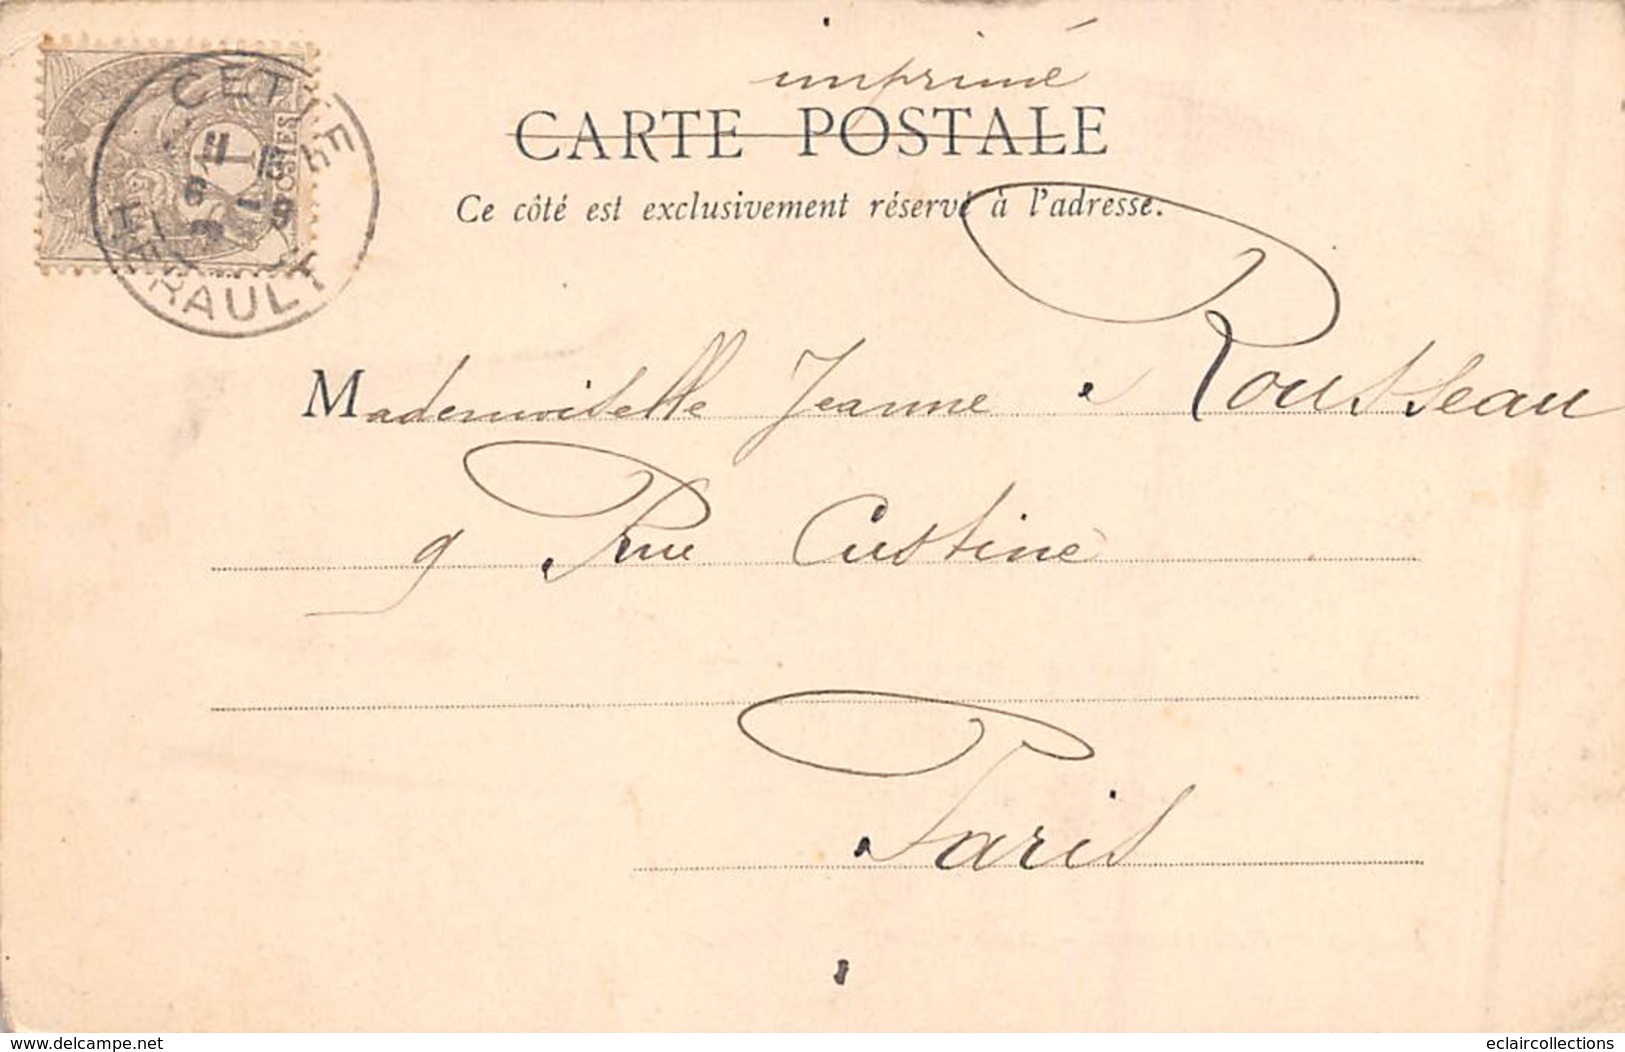 imprimé
CARTE POSTALE
Ce côté est exclusivement réservé à l'adresse.
CETTE
HERAULT
POSTES
Mademoiselle Jeanne Rousseau
9 Rue Custine
Paris
www.delcampe.net
eclaircollections